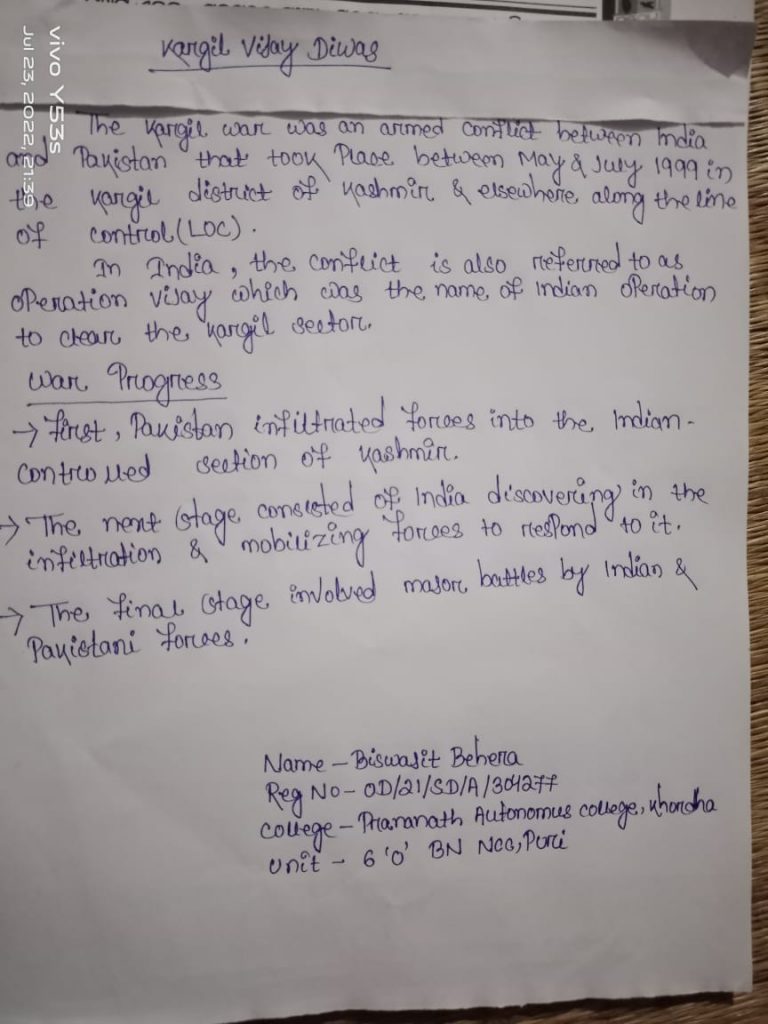 Kargil Vijay Diwas
The Kargil war was an armed conflict between India
and Pakistan that took Place between May & July 1999 in
the Kargil district of Kashmir & elsewhere along the line
of control (LOC).
In India, the conflict is also referred to as
operation vijay which was the name of Indian operation
to clear the Kargil sector.
War Progress
→ First, Pakistan infiltrated forces into the Indian-
controlled section of Kashmir.
→ The next stage consisted of India discovering in the
infiltration & mobilizing forces to respond to it.
→ The final stage involved major battles by Indian &
Pakistani forces.
Name - Biswajit Behera
Reg No - OD/21/SD/A/304277
College - Prananath Autonomus college, Khordha
Unit - 6 'O' BN NCC, Puri
vivo Y53s
Jul 23, 2022, 21:39